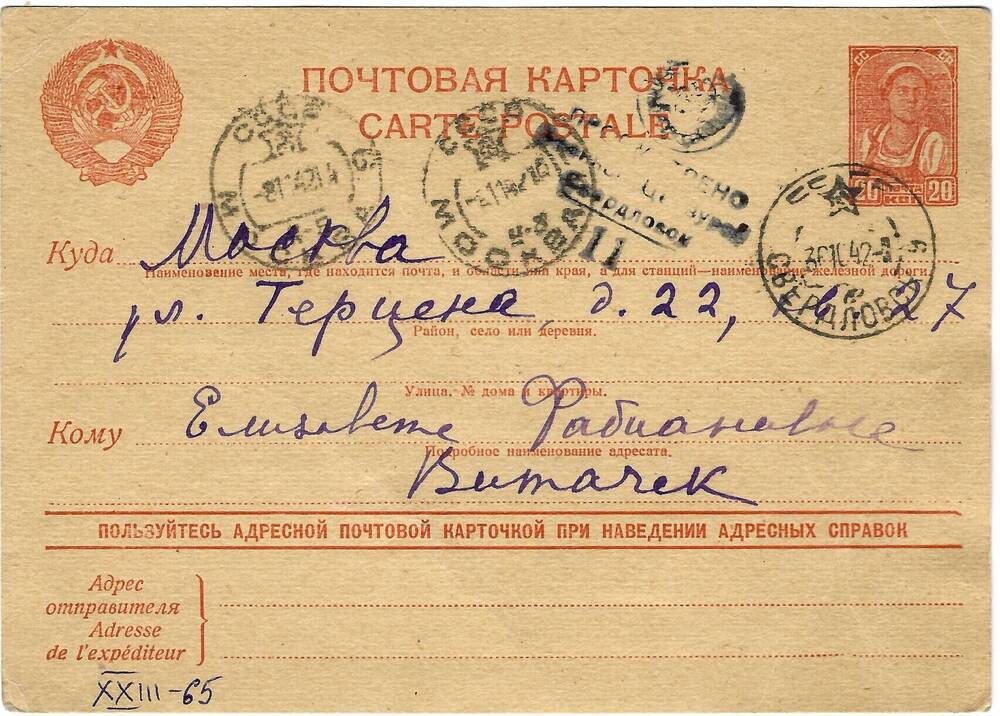 ПОЧТОВАЯ КАРТОЧКА
CARTE POSTALE
СС СР
20 20
СССР
МОСКВА
СССР
МОСКВА
ПРОСМОТРЕНО
Свердловск
11
СВЕРДЛОВСК
Куда Москва
Наименование места, где находится почта, и области или края, а для станций—наименование железной дороги.
ул. Герцена д. 22, кв. 27
Район, село или деревня.
Улица, № дома и квартиры.
Кому Елизавете Фабиановне
Подробное наименование адресата.
Витачек
ПОЛЬЗУЙТЕСЬ АДРЕСНОЙ ПОЧТОВОЙ КАРТОЧКОЙ ПРИ НАВЕДЕНИИ АДРЕСНЫХ СПРАВОК
Адрес
отправителя
Adresse
de l'expéditeur
XXIII-65